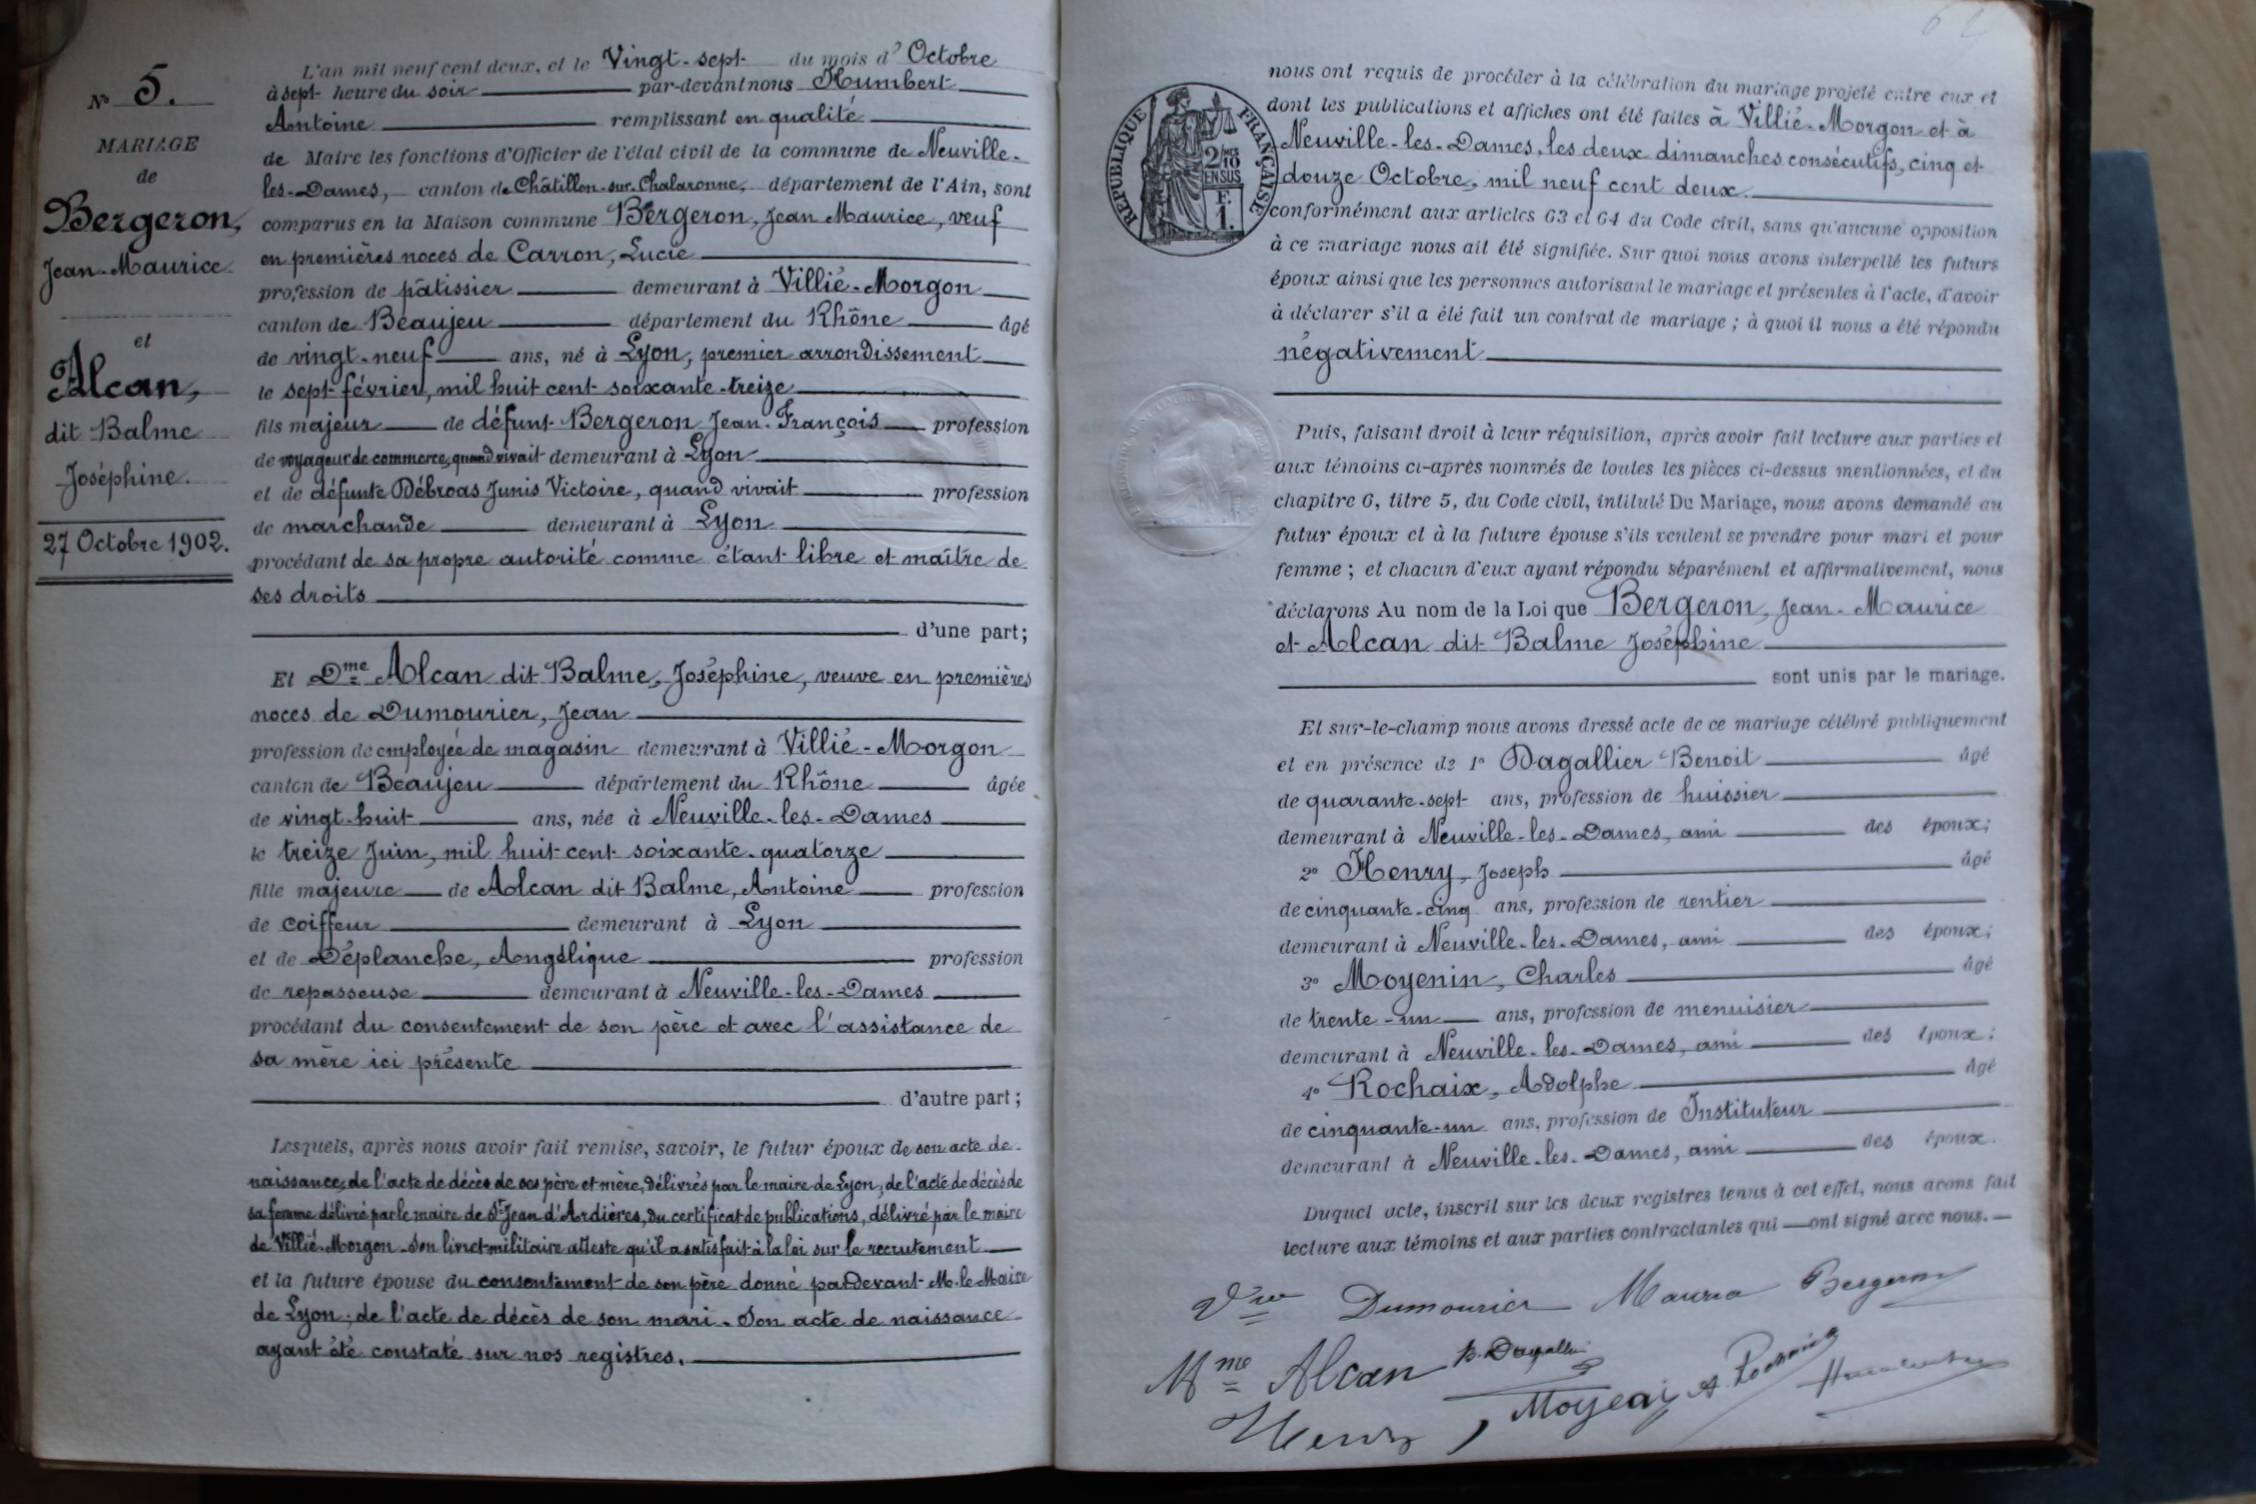 N° 5.
MARIAGE
de
Bergeron,
Jean-Maurice
et
Alcan,
dit Balme
Joséphine.
27 Octobre 1902.
L'an mil neuf cent deux, et le Vingt-sept du mois d'Octobre
à sept heure du soir par-devant nous Humbert
Antoine remplissant en qualité
de Maire les fonctions d'Officier de l'état civil de la commune de Neuville-
les-Dames, canton de Châtillon-sur-Chalaronne, département de l'Ain, sont
comparus en la Maison commune Bergeron, Jean Maurice, veuf
en premières noces de Carron, Lucie
profession de pâtissier demeurant à Villié-Morgon
canton de Beaujeu département du Rhône âgé
de vingt-neuf ans, né à Lyon, premier arrondissement
le sept février, mil huit cent soixante-treize
fils majeur de défunt Bergeron Jean-François profession
de voyageur de commerce, quand vivait demeurant à Lyon
et de défunte Débroas Junis Victoire, quand vivait profession
de marchande demeurant à Lyon
procédant de sa propre autorité comme étant libre et maître de
ses droits
d'une part;
Et Dme Alcan dit Balme, Joséphine, veuve en premières
noces de Dumourier, Jean
profession de employée de magasin demeurant à Villié-Morgon
canton de Beaujeu département du Rhône âgée
de vingt-huit ans, née à Neuville-les-Dames
le treize Juin, mil huit cent soixante-quatorze
fille majeure de Alcan dit Balme, Antoine profession
de coiffeur demeurant à Lyon
et de Déplanche, Angélique profession
de repasseuse demeurant à Neuville-les-Dames
procédant du consentement de son père et avec l'assistance de
sa mère ici présente
d'autre part;
Lesquels, après nous avoir fait remise, savoir, le futur époux de son acte de
naissance, de l'acte de décès de ses père et mère, délivrés par le maire de Lyon, de l'acte de décès de
sa femme délivré par le maire de St Jean d'Ardières, du certificat de publications, délivré par le maire
de Villié-Morgon. Son livret militaire atteste qu'il a satisfait à la loi sur le recrutement
et la future épouse du consentement de son père donné pardevant M. le Maire
de Lyon; de l'acte de décès de son mari. Son acte de naissance
ayant été constaté sur nos registres.
RÉPUBLIQUE FRANÇAISE
2/10
EN SUS
F.
1.
nous ont requis de procéder à la célébration du mariage projeté entre eux et
dont les publications et affiches ont été faites à Villié-Morgon et à
Neuville-les-Dames, les deux dimanches consécutifs, cinq et
douze Octobre, mil neuf cent deux.
conformément aux articles 63 et 64 du Code civil, sans qu'aucune opposition
à ce mariage nous ait été signifiée. Sur quoi nous avons interpellé les futurs
époux ainsi que les personnes autorisant le mariage et présentes à l'acte, d'avoir
à déclarer s'il a été fait un contrat de mariage; à quoi il nous a été répondu
négativement
Puis, faisant droit à leur réquisition, après avoir fait lecture aux parties et
aux témoins ci-après nommés de toutes les pièces ci-dessus mentionnées, et du
chapitre 6, titre 5, du Code civil, intitulé Du Mariage, nous avons demandé au
futur époux et à la future épouse s'ils veulent se prendre pour mari et pour
femme; et chacun d'eux ayant répondu séparément et affirmativement, nous
déclarons Au nom de la Loi que Bergeron, Jean-Maurice
et Alcan dit Balme Joséphine
sont unis par le mariage.
Et sur-le-champ nous avons dressé acte de ce mariage célébré publiquement
et en présence de 1° Dagallier Benoit âgé
de quarante-sept ans, profession de huissier
demeurant à Neuville-les-Dames, ami des époux;
2° Henry, Joseph âgé
de cinquante-cinq ans, profession de rentier
demeurant à Neuville-les-Dames, ami des époux;
3° Moyenin, Charles âgé
de trente-un ans, profession de menuisier
demeurant à Neuville-les-Dames, ami des époux;
4° Rochaix, Adolphe âgé
de cinquante-un ans, profession de Instituteur
demeurant à Neuville-les-Dames, ami des époux.
Duquel acte, inscrit sur les deux registres tenus à cet effet, nous avons fait
lecture aux témoins et aux parties contractantes qui ont signé avec nous.
Vve Dumourier Bergeron
Mme Alcan B. Dagallier
Henry A. Rochaix